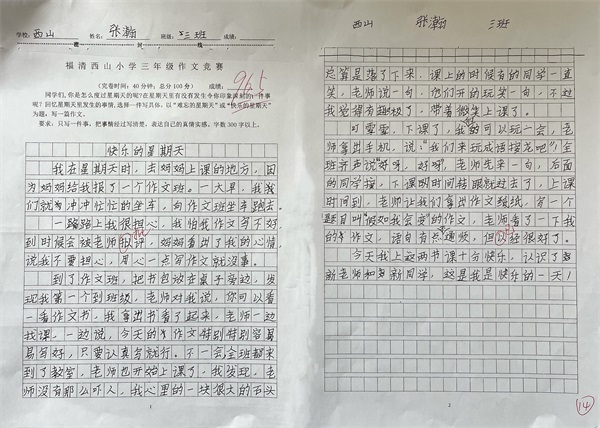 学校：西山 姓名：张瀚 班级：三班 成绩：
密 封 线
福清西山小学三年级作文竞赛
（完卷时间：40分钟；总分100分） 成绩：
96.5
同学们，你是怎么度过星期天的呢？在星期天里有没有发生令你印象深刻的一件事
呢？回忆星期天里发生的事情，选择一件写具体，以“难忘的星期天”或“快乐的星期天”
为题，写一篇作文。
要求：只写一件事，把事情经过写清楚，表达自己的真情实感，字数300字以上。
快乐的星期天
我在星期天时，去妈妈上课的地方，因
为妈妈给我报了一个作文班。一大早，我
们就冲冲忙忙的坐车，向作文班坐车去。
一路上我很担心，我怕我作文写不好
到时候会被老师批评，妈妈看出了我的心情，
说我不要担心，用心一点写作文就没事。
到了作文班，把书包放在桌子旁边，发
现我第一个到班级，老师对我说，你可以看
一看作文书，我拿出书看了起来，老师一边
找课，一边说，今天的作文特别特别容易
易写好，只要认真写就行。不一会全班都来
到了教室，老师也开始上课了，我发现，老
师没有那么吓人，我心里的一块很大的石头
1
西山 张瀚 三班
总算是落了下来，课上的时候有的同学一直
笑，老师说一句，他们开的玩笑一句，不过
我觉得有趣极了，带着微笑上课了。
叮零零，下课了，我们可以玩一会，老
师拿出手机，说：“我们来玩成语接龙吧”，全
班齐声说“好呀，好呀”，老师先来一句，后面
的同学接，下课的时间转眼就过去了，上课
时间到，老师让我们拿出作文练纸，有一个
题目叫“假如我会变”的作文，老师看了一下我
的作文，语句有些不通顺，但已经很好了。
今天我上这两节课十分快乐，认识了
新老师和新同学，这是我是快乐的一天！
2
14